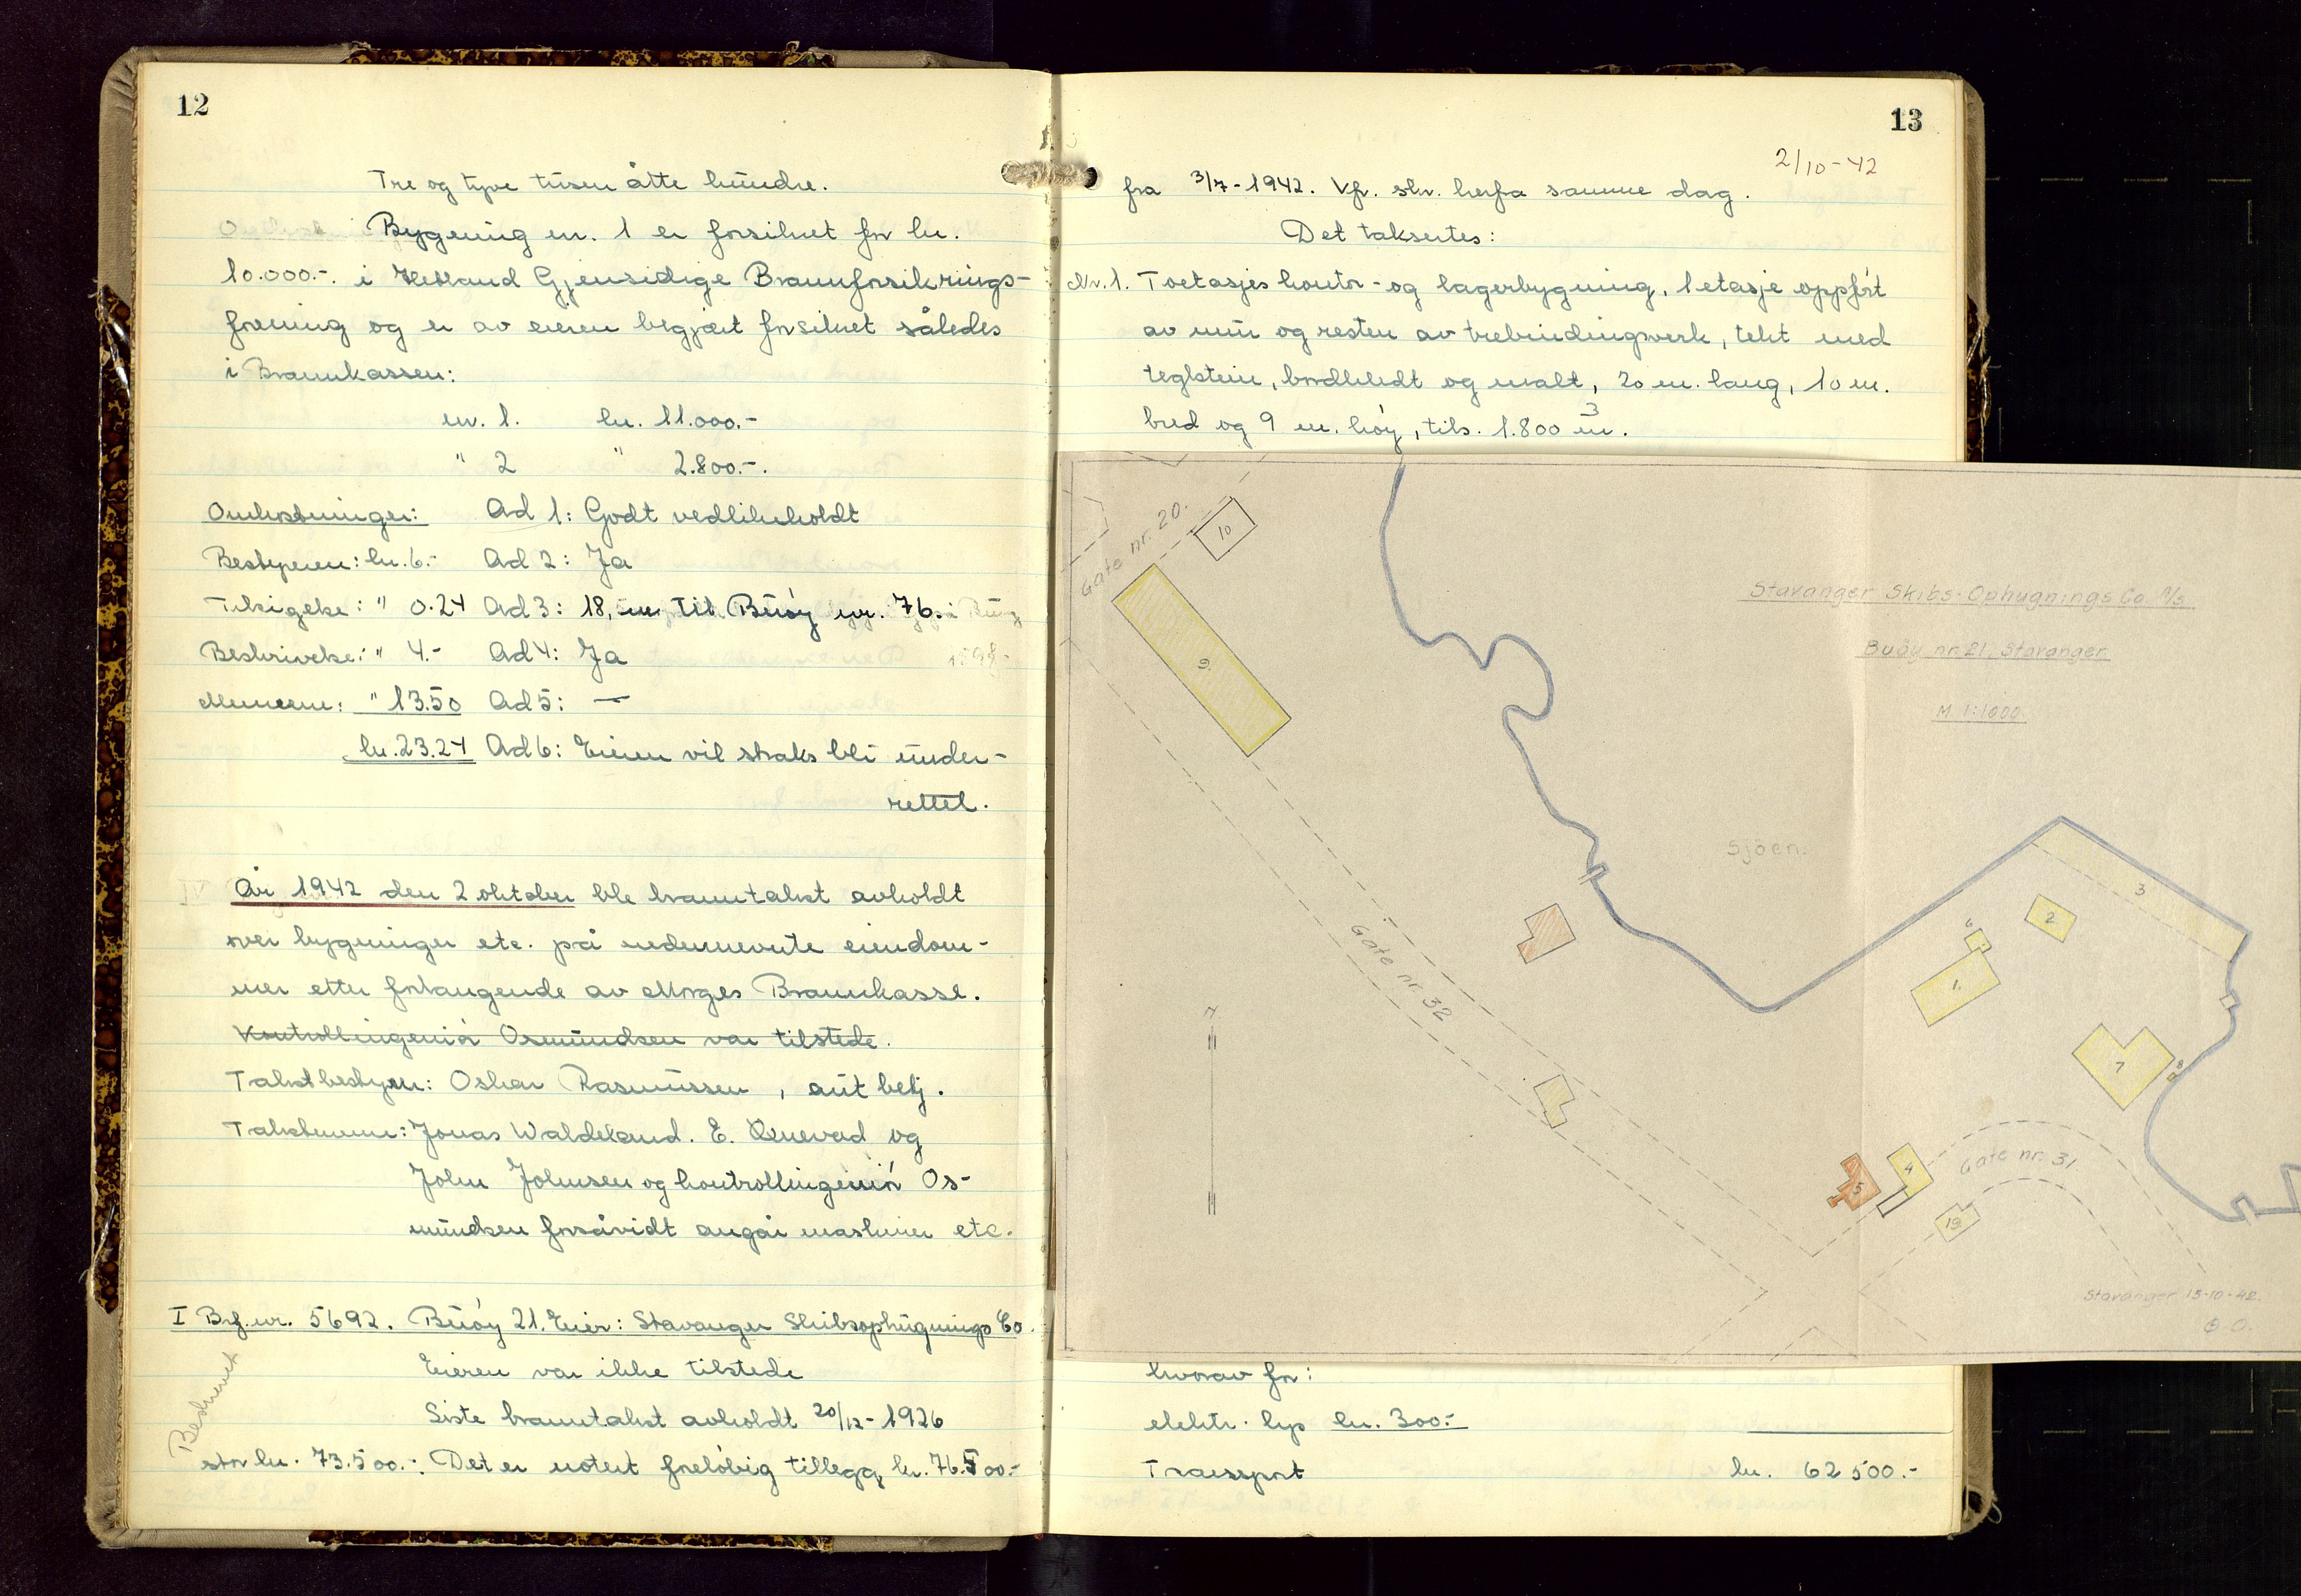 12
Tre og tyve tusen åtte hundre.
Bygning nr. 1 er forsikret for kr.
10.000.-. i Hetland Gjensidige Brannforsikrings-
forening og er av eieren begjært forsikret således
i Brannkassen:
nr. 1. kr. 11.000.-
" 2 " 2.800.-.
Omkostninger: Ad 1: Godt vedlikeholdt
Bestyreren: kr. 6.- Ad 2: Ja
Ad 3: 18, m til Buøy nr. 76.
Beskrivelse: " 4.- Ad 4: Ja
Mennene: " 13.50 Ad 5: —
kr. 23.24 Ad 6: Eieren vil straks bli under-
rettet.
År 1942 den 2 oktober ble branntakst avholdt
over bygninger etc. på nedennevnte eiendom-
mer etter forlangende av Norges Brannkasse.
Kontrollingeniør Osmundsen var tilstede.
Takstbestyrer: Oskar Rasmussen, aut betj.
Takstmenn: Jonas Waldeland. E. Qvnevad og
John Johnsen og kontrollingeniør Os-
mundsen forsåvidt angår maskiner etc.
I Brf. nr. 5692. Buøy 21. Eier: Stavanger Skibsophugnings Co.
Eieren var ikke tilstede
Siste branntakst avholdt 20/12-1926
Beskrevet
stor kr. 73.500.-. Det er notert foreløbig tillegg kr. 76.500.-
13
2/10-42
fra 3/7-1942. Vfr. skr. herfra samme dag.
Det taksertes:
Nr. 1. Toetasjes kontor- og lagerbygning, 1 etasje oppført
av mur og resten av trebindingverk, tekt med
teglstein, bordkledt og malt, 20 m. lang, 10 m.
bred og 9 m. høy, tils. 1.800 m3.
Gate nr. 20.
10
9.
Stavanger Skibs-Ophugnings Co. A/s
Buøy nr. 21, Stavanger.
M 1:1000.
Sjöen.
Gate nr. 32
3
2
6
1.
7
8
4
5
Gate nr. 31.
13
Stavanger 15-10-42.
O.O.
hvorav for:
elektr. lys kr. 300.-
Transport kr. 62 500.-